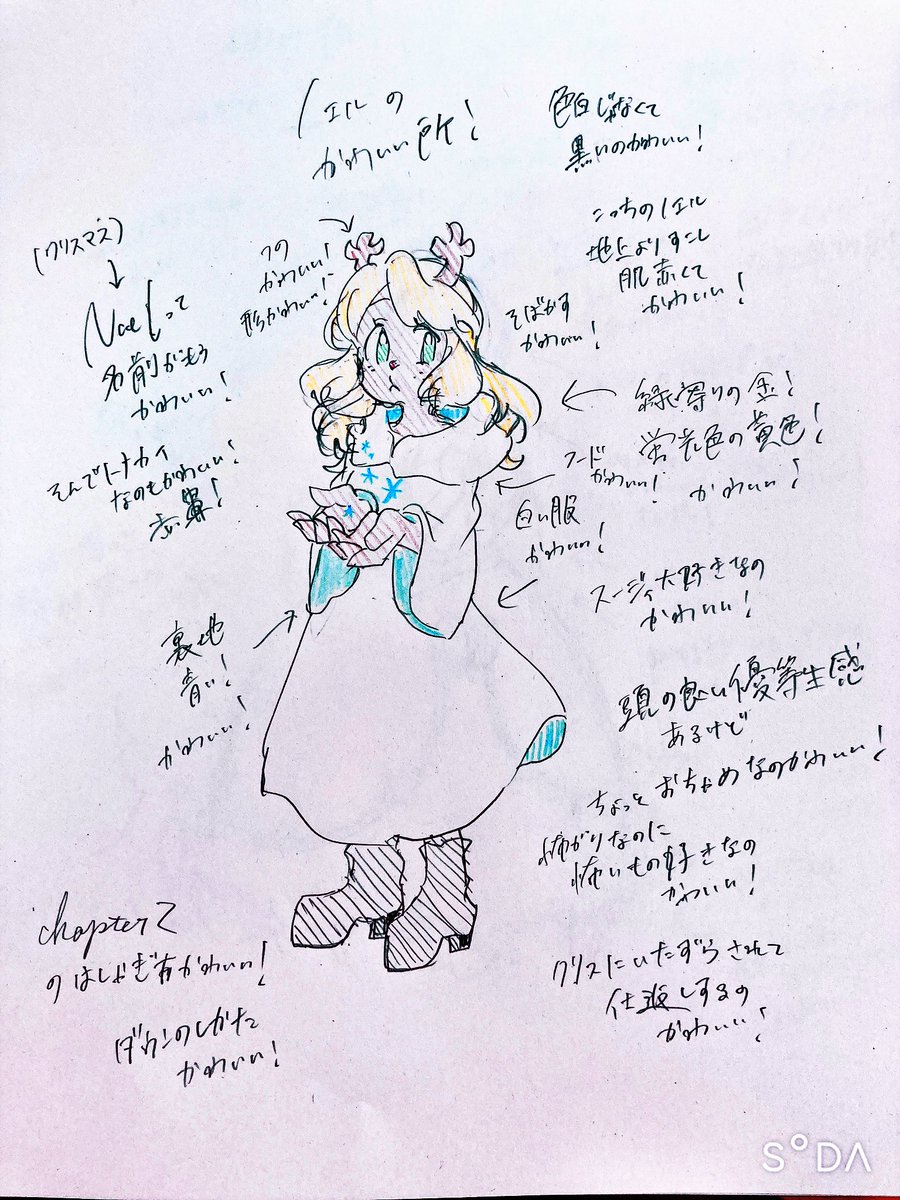 ノエルの
かわいい所!
色白じゃなくて
黒いのかわいい!
こっちのノエル
地上よりすこし
肌赤くて
かわいい!
(クリスマス)
↓
Noelって
名前がもう
かわいい!
そんでトナカイ
なのもかわいい!
赤鼻!
ツノ
かわいい!
形かわいい!
そばかす
かわいい!
← 緑寄りの金!
蛍光色の黄色!
かわいい!
フード
かわいい!
白い服
かわいい!
スージィ大好きなの
かわいい!
裏地
青い!
かわいい!
頭の良い優等生感
あるけど
ちょっとおちゃめなのかわいい!
怖がりなのに
怖いもの好きなの
かわいい!
クリスにいたずらされて
仕返しするの
かわいい!
chapter2
のはしゃぎ方かわいい!
ダウンのしかた
かわいい!
SODA